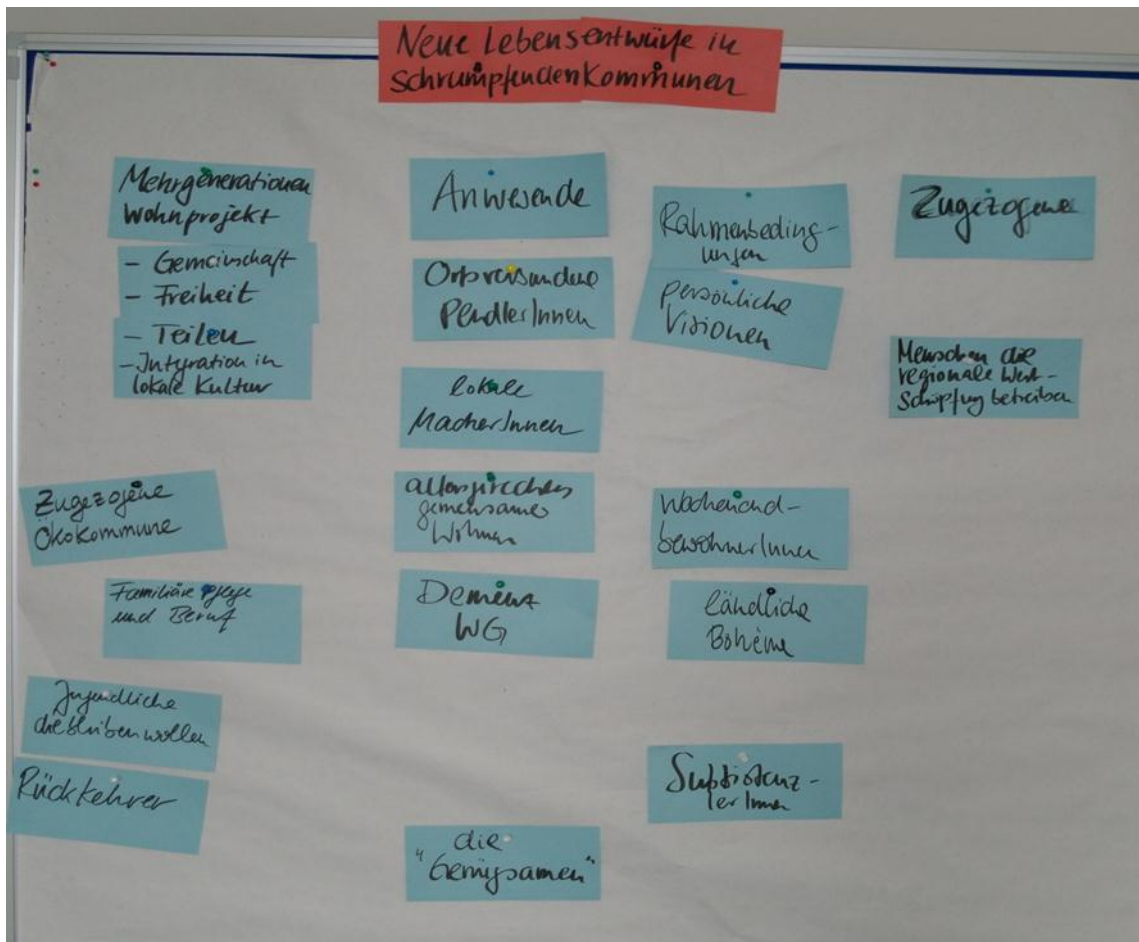 Neue Lebensentwürfe in
schrumpfenden Kommunen
Mehrgenerationen
Wohnprojekt
- Gemeinschaft
- Freiheit
- Teilen
- Integration in
lokale Kultur
Zugezogene
Ökokommune
Familiäre Pflege
und Beruf
Jugendliche
die bleiben wollen
Rückkehrer
Anwesende
Ortsverbundene
PendlerInnen
lokale
MacherInnen
altersgerechtes
gemeinsames
Wohnen
Demenz
WG
die
"Genügsamen"
Rahmenbeding-
ungen
persönliche
Visionen
Wochenend-
bewohnerInnen
ländliche
Bohème
Subsistenz-
lerInnen
Zugezogene
Menschen die
regionale Wert-
schöpfung betreiben